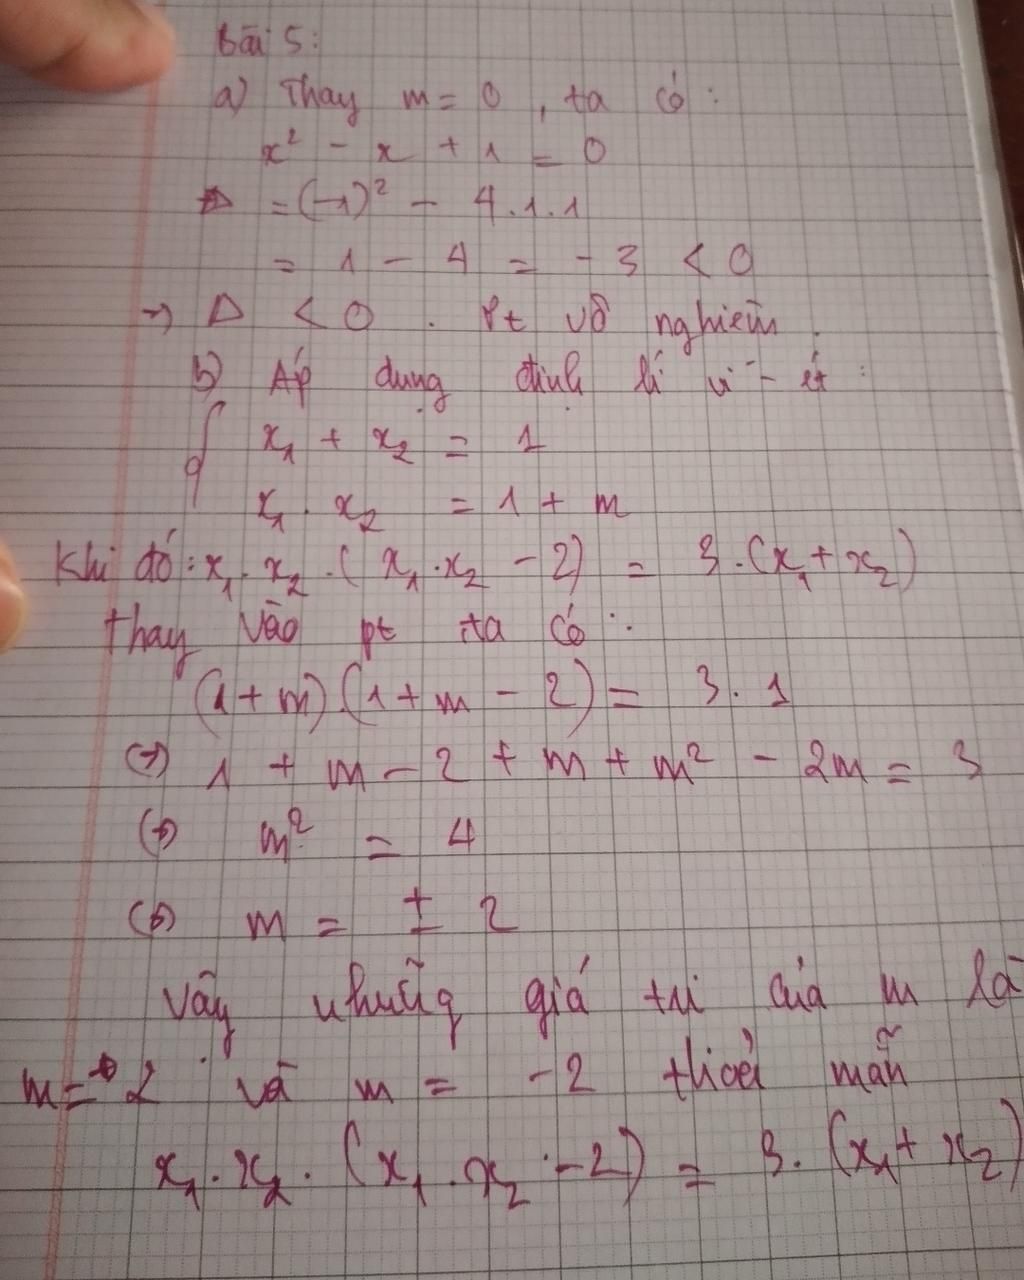 Bài 5:
a) Thay m = 0 , ta có :
x² - x + 1 = 0
Δ = (-1)² - 4.1.1
= 1 - 4 = -3 < 0
→ Δ < 0 . Pt vô nghiệm .
b) Áp dụng định lí vi - ét :
{ x₁ + x₂ = 1
x₁ . x₂ = 1 + m
Khi đó : x₁ . x₂ . ( x₁ . x₂ - 2) = 3 . (x₁ + x₂)
Thay vào pt ta có :
(1 + m) (1 + m - 2) = 3 . 1
(⇒) 1 + m - 2 + m + m² - 2m = 3
(⇒) m² = 4
(⇒) m = ± 2
Vậy những giá trị của m là
m = 2 và m = -2 thoả mãn
x₁ . x₂ . (x₁ . x₂ - 2) = 3 . (x₁ + x₂)